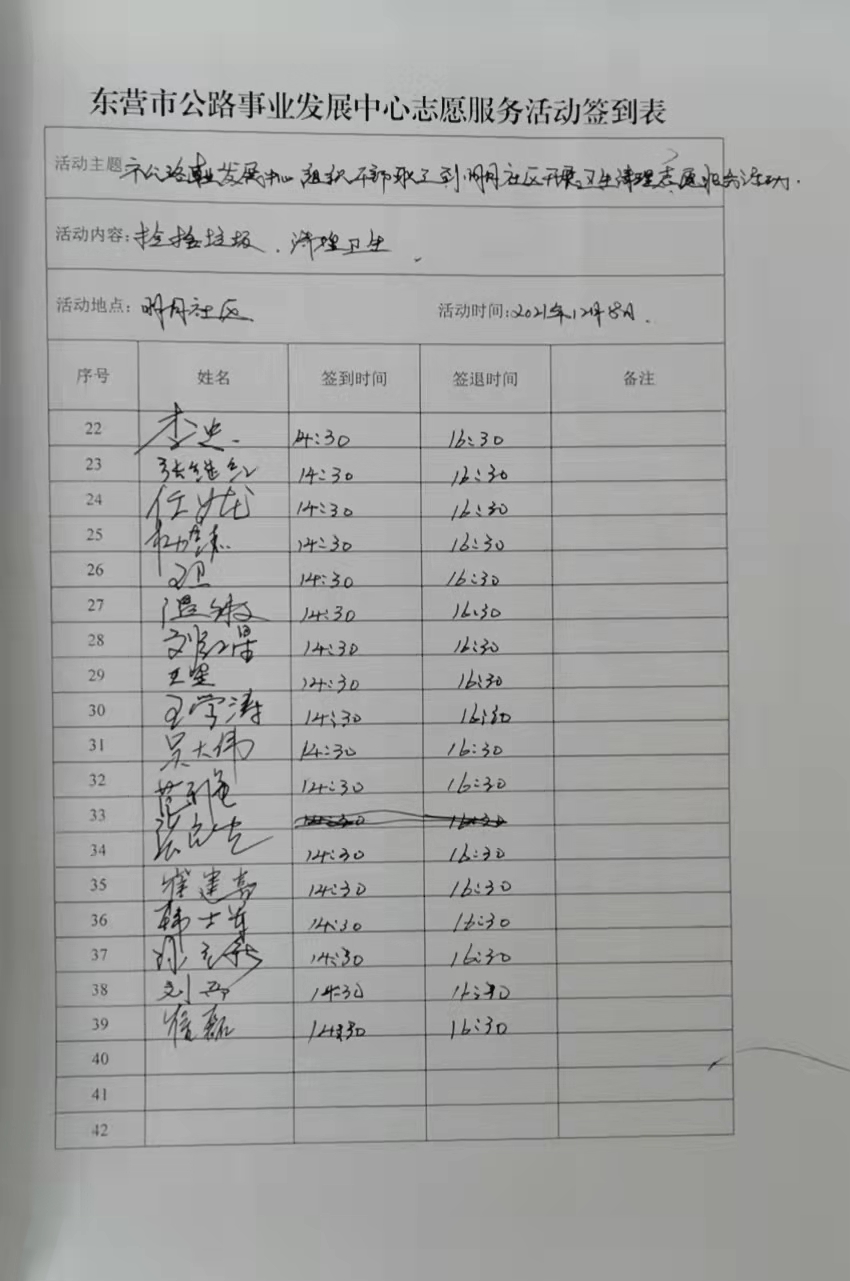 东营市公路事业发展中心志愿服务活动签到表
活动主题 市公路事业发展中心组织干部职工到明月社区开展卫生清理志愿服务活动.
活动内容: 捡拾垃圾、清理卫生.
活动地点: 明月社区 活动时间: 2021年12月8日.
序号 姓名 签到时间 签退时间 备注
22 李 14:30 16:30
23 张继红 14:30 16:30
24 任 14:30 16:30
25 14:30 16:30
26 王卫 14:30 16:30
27 温敏 14:30 16:30
28 刘 14:30 16:30
29 王坚 14:30 16:30
30 王学涛 14:30 16:30
31 吴大伟 14:30 16:30
32 范 14:30 16:30
33 张 14:30 16:30
34 14:30 16:30
35 崔建 14:30 16:30
36 韩士军 14:30 16:30
37 14:30 16:30
38 刘 14:30 16:30
39 崔磊 14:30 16:30
40
41
42